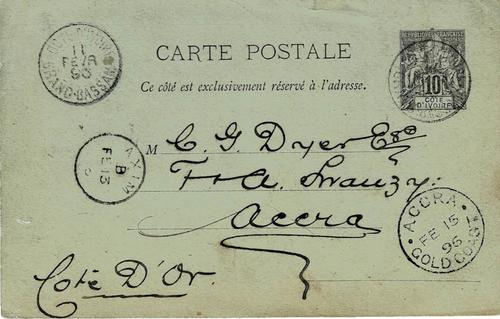 CÔTE D'IVOIRE
11
FEVR
96
GRAND-BASSAM
CARTE POSTALE
Ce côté est exclusivement réservé à l'adresse.
RÉPUBLIQUE FRANÇAISE
10
CÔTE
D'IVOIRE
M C. G. Dyer Esq
F & A. Swanzy.
Accra
Côte D'Or.
AXIM
B
FE 13
ACCRA
FE 15
96
GOLD COAST